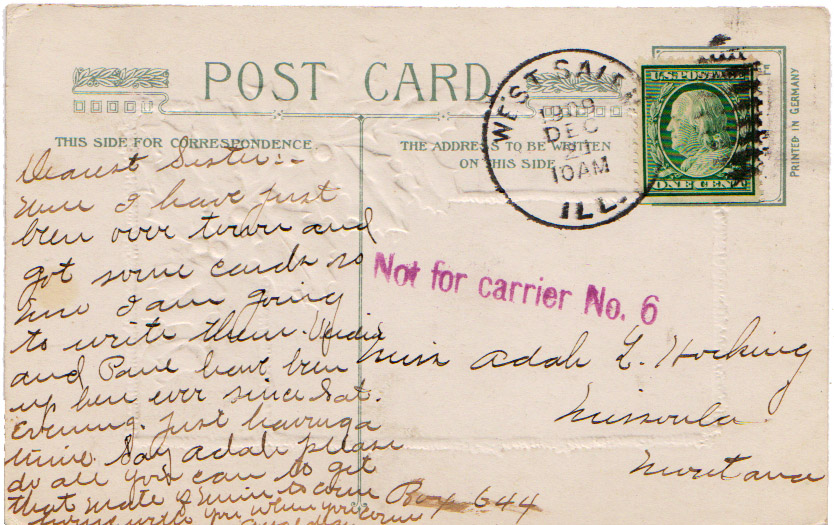 POST CARD
THIS SIDE FOR CORRESPONDENCE.
THE ADDRESS TO BE WRITTEN
ON THIS SIDE
WEST SALEM
1909
DEC
21
10AM
ILL.
U.S. POSTAGE
ONE CENT
PRINTED IN GERMANY
Not for carrier No. 6
Dearest Sister:-
I have just
been over town and
got some cards so
I am going
to write them.
and Paul have been
up here ever since Sat.
Evening. Just having a
time. Say Adah please
do all you can to get
that mate of mine to come
with you when you come
Miss Adah L. Hocking
Missoula
Montana
Box 644